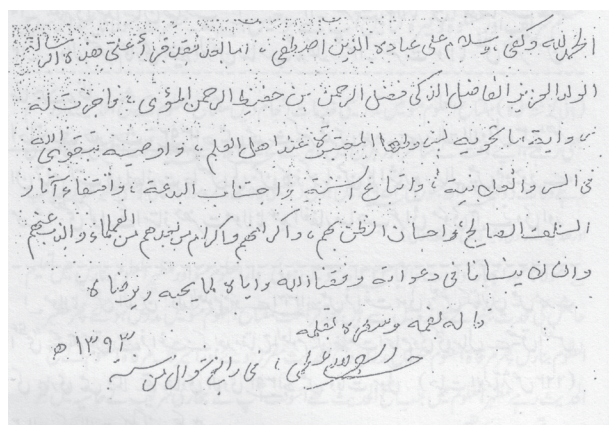 الحمد لله وكفى، وسلام على عباده الذين اصطفى، اما بعد فقد قرأ عنى هذه الرسالة
الولد العزيز الفاضل الذكى فضل الرحمن بن حفيظ الرحمن المؤى، فاجزت له
رواية ما تحويه بشروطها المعتبرة عند اهل العلم، واوصيه بتقوى الله
فى السر والعلانية، واتباع السنة واجتناب البدعة، واقتفاء آثار
السلف الصالح واحسان الظن بهم، واكرامهم واكرام من بعدهم من العلماء والذب عنهم
وان لا ينسانا فى دعواته وفقنا الله واياه لما يحبه ويرضاه
قاله بفمه وسطره بقلمه
حبيب الرحمن الاعظمى، فى رابع شوال من سنة ١٣٩٣ ه